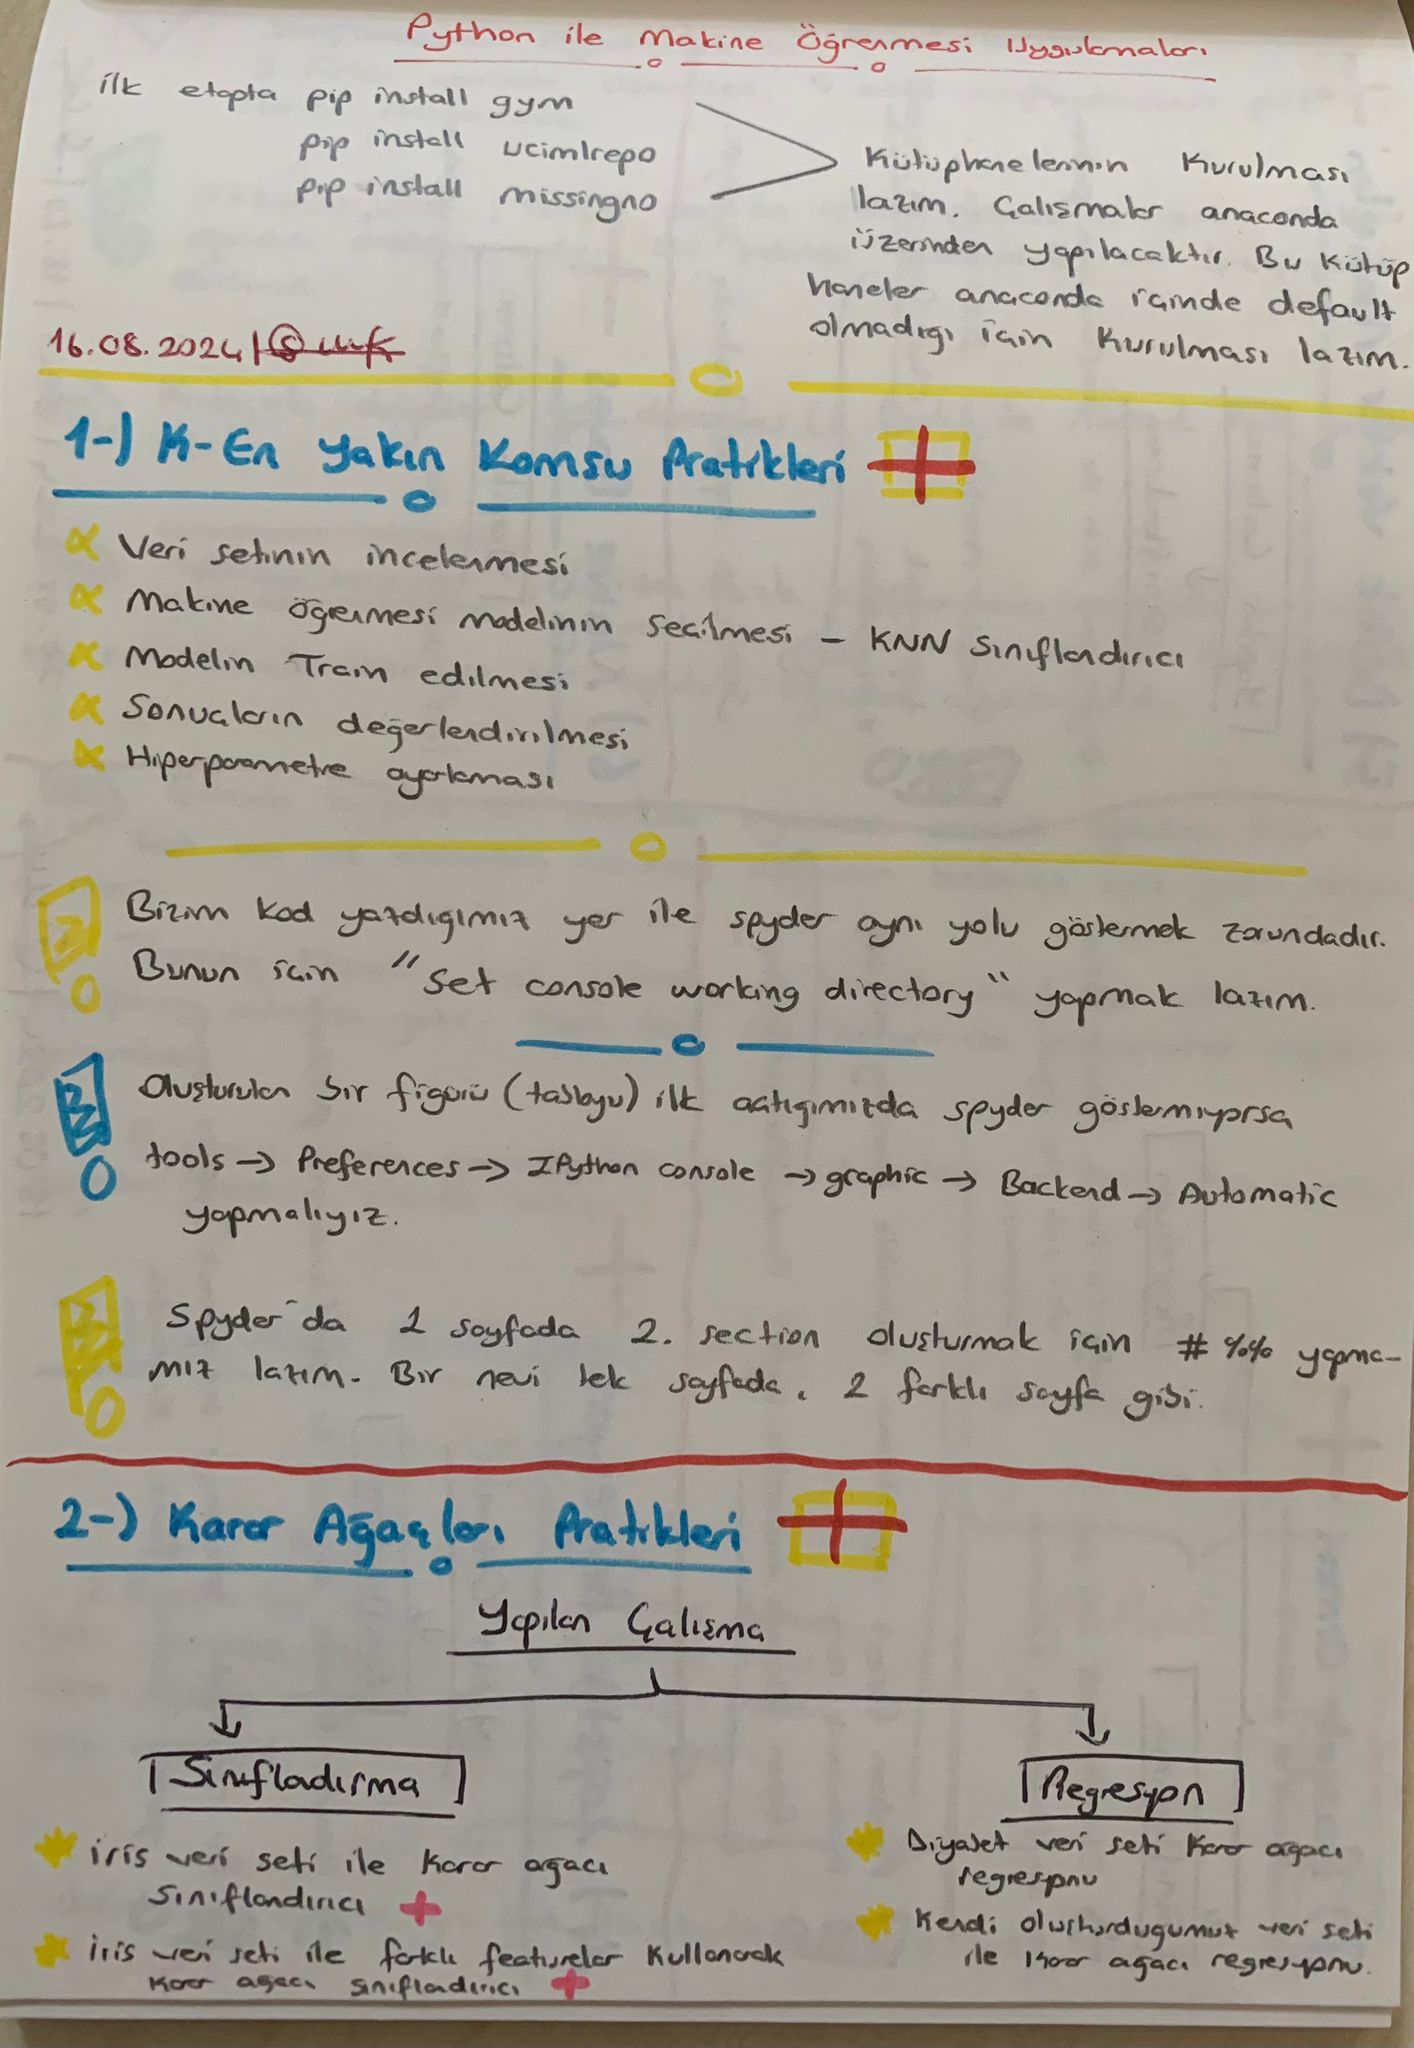 Python ile Makine Öğrenmesi Uygulamaları
ilk etapta pip install gym
pip install ucimlrepo
pip install missingno
Kütüphanelerinin Kurulması
lazım. Çalışmalar anaconda
üzerinden yapılacaktır. Bu Kütüp
haneler anaconda içinde default
olmadığı için Kurulması lazım.
16.08.2024 |
1-) K-En Yakın Komşu Pratikleri
Veri setinin incelenmesi
Makine öğrenmesi modelinin seçilmesi - KNN Sınıflandırıcı
Modelin Train edilmesi
Sonuçların değerlendirilmesi
Hiperparametre ayarlaması
Bizim kod yazdığımız yer ile spyder aynı yolu göstermek zorundadır.
Bunun için "set console working directory" yapmak lazım.
Oluşturulan bir figürü (tabloyu) ilk açtığımızda spyder göstermiyorsa
tools → Preferences → IPython console → graphic → Backend → Automatic
yapmalıyız.
Spyder'da 1 sayfada 2. section oluşturmak için # %% yapma-
mız lazım. Bir nevi tek sayfada, 2 farklı sayfa gibi.
2-) Karar Ağaçları Pratikleri
Yapılan Çalışma
Sınıfladırma
Regresyon
iris veri seti ile Karar ağacı
Sınıflandırıcı
iris veri seti ile farklı featurelar Kullanarak
Karar ağacı sınıflandırıcı
Diyabet veri seti Karar ağacı
regresyonu
Kendi oluşturduğumuz veri seti
ile Karar ağacı regresyonu.